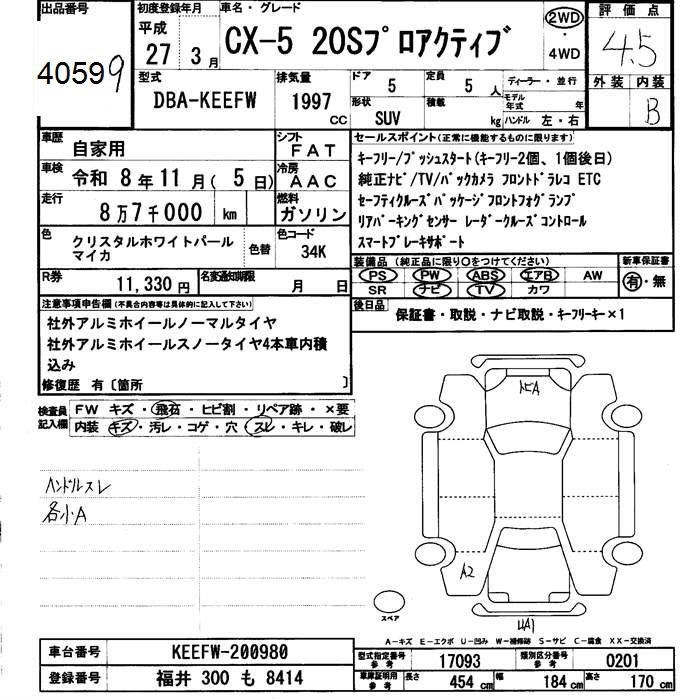 出品番号
40599
初度登録年月
平成
27 3月
車名・グレード
CX-5 20Sプロアクティブ
2WD
・
4WD
評価点
4.5
型式
DBA-KEEFW
排気量
1997
CC
ドア
5
定員
5 人
形状
SUV
積載
kg
ディーラー・並行
モデル年式 年
ハンドル 左・右
外装 内装
B
車歴
自家用
シフト
FAT
車検
令和 8年11月( 5日)
冷房
AAC
走行
8万7千000 km
燃料
ガソリン
色
クリスタルホワイトパール
マイカ
色替
色コード
34K
R券
11,330円
名変通知期限
月 日
セールスポイント(正常に機能するものに限ります)
キーフリー/プッシュスタート(キーフリー2個、1個後日)
純正ナビ/TV/バックカメラ フロントドラレコ ETC
セーフティクルーズパッケージフロントフォグランプ
リアパーキングセンサー レーダークルーズコントロール
スマートブレーキサポート
装備品 (純正品に限り○をつけてください)
新車保証書
PS PW ABS エアB AW
SR ナビ TV カワ
有・無
後日品
保証書・取説・ナビ取説・キーフリーキー×1
注意事項申告欄(不具合内容等は具体的に記入して下さい)
社外アルミホイールノーマルタイヤ
社外アルミホイールスノータイヤ4本車内積
込み
修復歴 有〔箇所 〕
検査員
記入欄
FW キズ・飛石・ヒビ割・リペア跡・×要
内装 キズ・汚レ・コゲ・穴・スレ・キレ・破レ
ハンドルスレ
各小A
トビA
A2
UA1
スペア
A-キズ E-エクボ U-凹み W-補修跡 S-サビ C-腐食 XX-交換済
車台番号
KEEFW-200980
登録番号
福井 300 も 8414
型式指定番号
参考
17093
類別区分番号
参考
0201
車庫証明用
参考
長さ
454 cm
幅
184 cm
高さ
170 cm